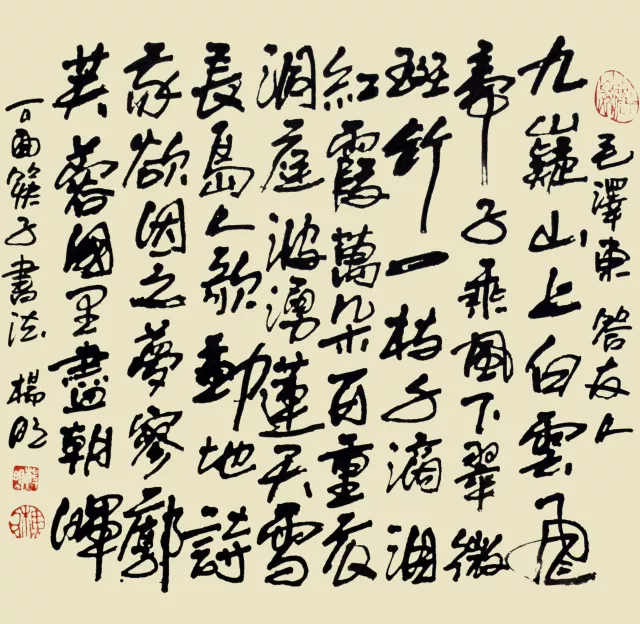 毛澤東 答友人
九嶷山上白雲飛
帝子乘風下翠微
斑竹一枝千滴泪
紅霞萬朵百重衣
洞庭波湧連天雪
長島人歌動地詩
我欲因之夢寥廓
芙蓉國里盡朝暉
筷子書法 楊明